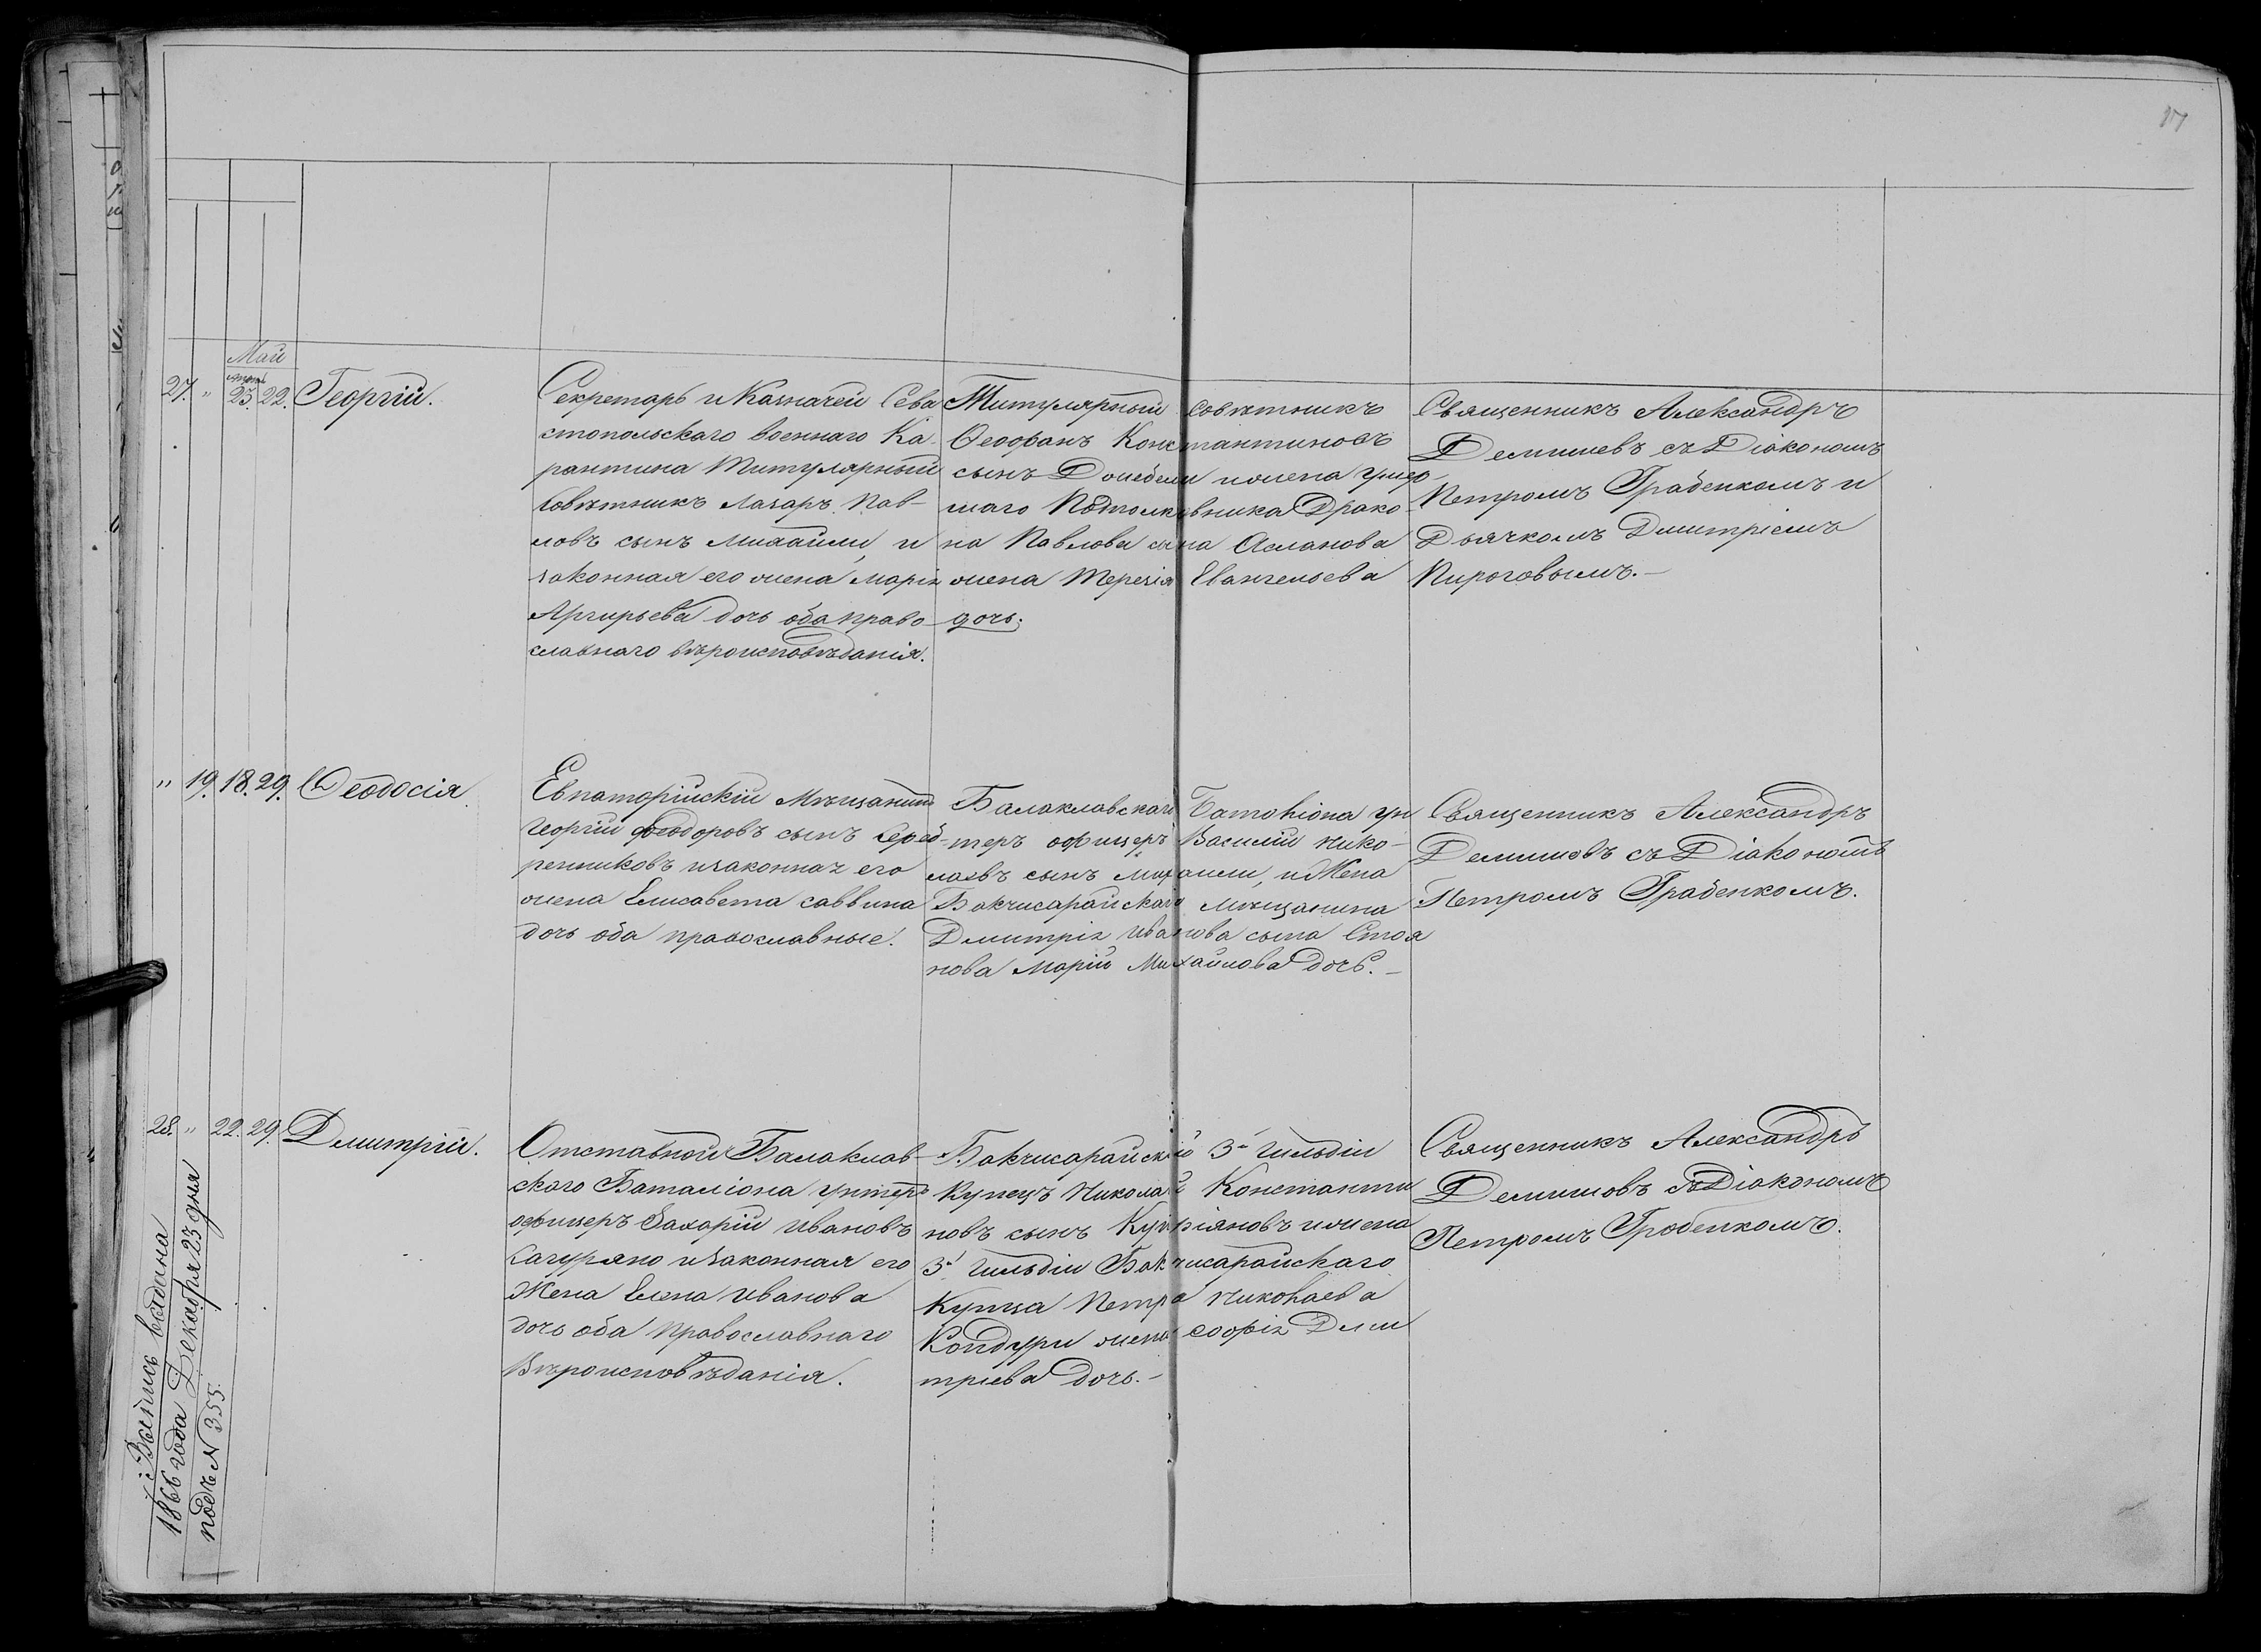 Май
27. " 23. 22. Георгій.
Секретарь и Казначей Сева
стопольскаго военнаго Ка-
рантина Титулярный
Совѣтникъ Лазарь Пав-
ловъ сынъ Михаили, и
законная его жена Марія
Аргирьева дочь оба право-
славнаго вѣроисповѣданія.
Титулярный Совѣтникъ
Ѳеофанъ Константиновъ
сынъ и жена умер-
шаго Подполковника Драко
на Павлова сына Асланова
жена Терезія Евангельева
дочь.
Священникъ Александръ
Демишевъ съ Діакономъ
Петромъ Грабенкомъ и
Дьячкомъ Дмитріемъ
Пироговымъ.—
" 19. 18. 29. Ѳеодосія.
Евпаторійскій Мѣщанинъ
Георгій Феодоровъ сынъ Сереб-
ренниковъ и законная его
жена Елисавета Саввина
дочь оба православные.
Балаклавскаго Баталіона ун
теръ офицеръ Василій Нико-
лаевъ сынъ Михаили, и Жена
Бакчисарайскаго Мѣщанина
Дмитрія Иванова сына Стоя
нова Марія Михайлова дочь.—
Священникъ Александръ
Демишовъ съ Діакономъ
Петромъ Грабенкомъ.
28. " 22. 29. Дмитрій.
Отставной Балаклав-
скаго Баталіона унтеръ
офицеръ Захарій Ивановъ
и Законная его
Жена Елена Иванова
дочь оба православнаго
Вѣроисповѣданія.
Бакчисарайскій 3й Гильдіи
Купецъ Николай Константи
новъ сынъ Купріяновъ и жена
3й Гильдіи Бакчисарайскаго
Купца Петра Николаева
Кондури жена Софія Дми
тріева дочь.—
Священникъ Александръ
Демишовъ съ Діакономъ
Петромъ Грабенкомъ.
Выпись выдана
1866 года Декабря 23 дня
подъ N 355.